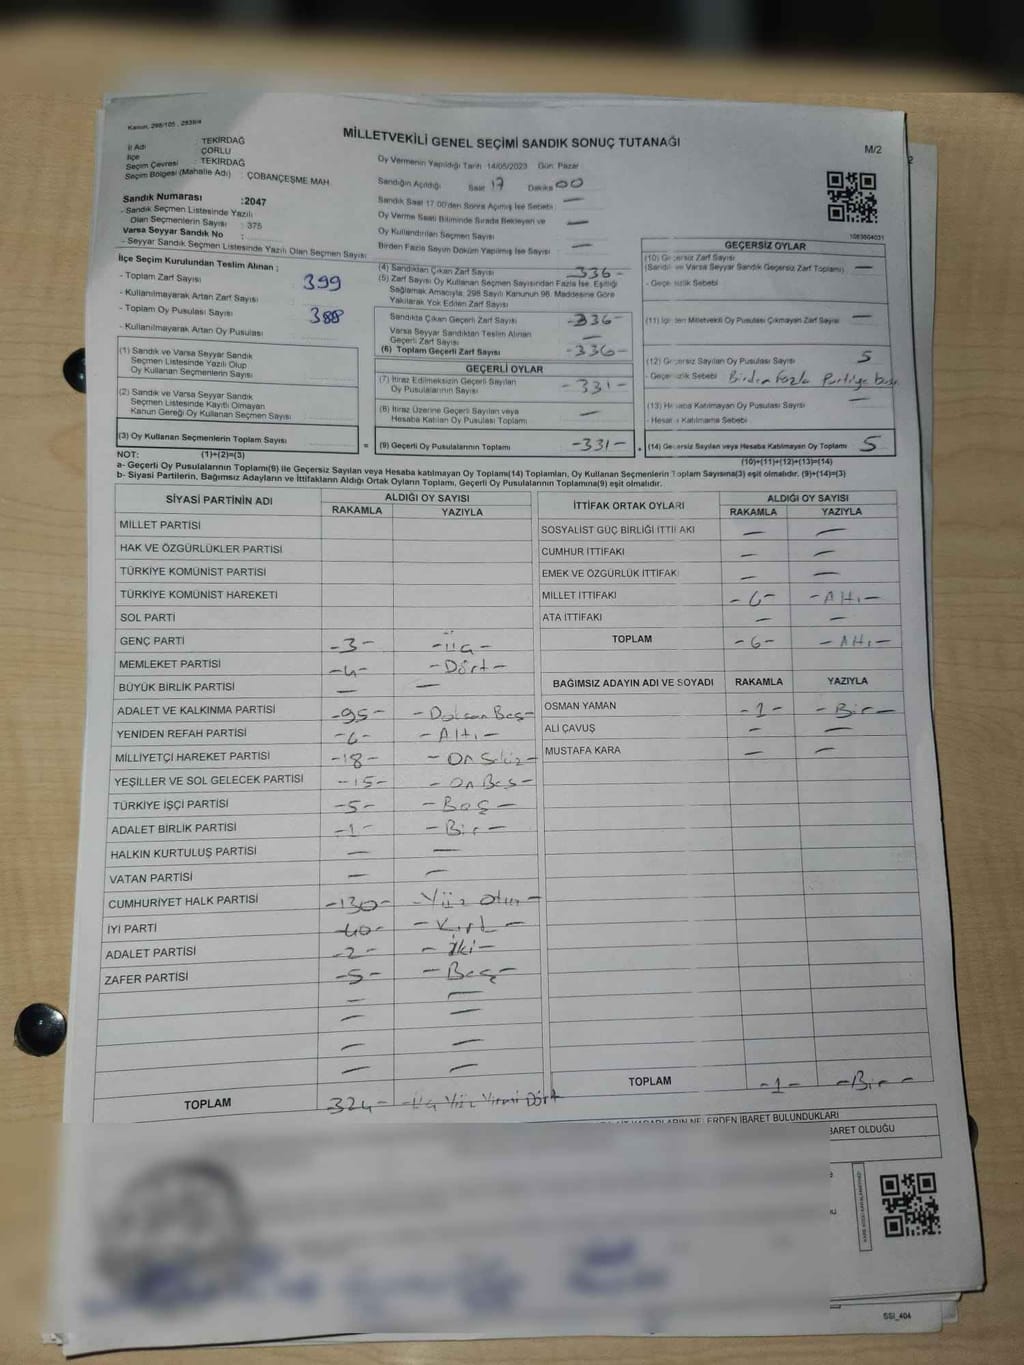 Kanun, 298/105 , 2839/4
MİLLETVEKİLİ GENEL SEÇİMİ SANDIK SONUÇ TUTANAĞI
M/2
İl Adı : TEKİRDAĞ
İlçe : ÇORLU
Seçim Çevresi : TEKİRDAĞ
Seçim Bölgesi (Mahalle Adı) : ÇOBANÇEŞME MAH.
Sandık Numarası :2047
- Sandık Seçmen Listesinde Yazılı
Olan Seçmenlerin Sayısı : 375
Varsa Seyyar Sandık No :
- Seyyar Sandık Seçmen Listesinde Yazılı Olan Seçmen Sayısı :
Oy Vermenin Yapıldığı Tarih 14/05/2023 Gün: Pazar
Sandığın Açıldığı Saat 17 Dakika 00
Sandık Saat 17.00'den Sonra Açılmış İse Sebebi : —
Oy Verme Saati Bitiminde Sırada Bekleyen ve
Oy Kullandırılan Seçmen Sayısı —
Birden Fazla Sayım Döküm Yapılmış İse Sayısı : —
İlçe Seçim Kurulundan Teslim Alınan :
- Toplam Zarf Sayısı : 399
- Kullanılmayarak Artan Zarf Sayısı :
- Toplam Oy Pusulası Sayısı : 388
- Kullanılmayarak Artan Oy Pusulası
(1) Sandık ve Varsa Seyyar Sandık
Seçmen Listesinde Yazılı Olup
Oy Kullanan Seçmenlerin Sayısı
(2) Sandık ve Varsa Seyyar Sandık
Seçmen Listesinde Kayıtlı Olmayan
Kanun Gereği Oy Kullanan Seçmen Sayısı
(3) Oy Kullanan Seçmenlerin Toplam Sayısı
(4) Sandıktan Çıkan Zarf Sayısı 336-
(5) Zarf Sayısı Oy Kullanan Seçmen Sayısından Fazla İse, Eşitliği
Sağlamak Amacıyla, 298 Sayılı Kanunun 98. Maddesine Göre
Yakılarak Yok Edilen Zarf Sayısı
Sandıkta Çıkan Geçerli Zarf Sayısı -336-
Varsa Seyyar Sandıktan Teslim Alınan
Geçerli Zarf Sayısı —
(6) Toplam Geçerli Zarf Sayısı -336-
GEÇERLİ OYLAR
(7) İtiraz Edilmeksizin Geçerli Sayılan
Oy Pusulalarının Sayısı -331-
(8) İtiraz Üzerine Geçerli Sayılan veya
Hesaba Katılan Oy Pusulası Toplamı —
= (9) Geçerli Oy Pusulalarının Toplamı -331-
GEÇERSİZ OYLAR
(10) Geçersiz Zarf Sayısı
(Sandık ve Varsa Seyyar Sandık Geçersiz Zarf Toplamı) —
- Geçersizlik Sebebi
Milletvekili Oy Pusulası Çıkmayan Zarf Sayısı —
(12) Geçersiz Sayılan Oy Pusulası Sayısı 5
- Geçersizlik Sebebi Birden Fazla Partiye
(13) Hesaba Katılmayan Oy Pusulası Sayısı —
- Hesaba Katılmama Sebebi
(14) Geçersiz Sayılan veya Hesaba Katılmayan Oy Toplamı 5
NOT: (1)+(2)=(3)
(10)+(11)+(12)+(13)=(14)
a- Geçerli Oy Pusulalarının Toplamı(9) ile Geçersiz Sayılan veya Hesaba katılmayan Oy Toplamı(14) Toplamları, Oy Kullanan Seçmenlerin Toplam Sayısına(3) eşit olmalıdır. (9)+(14)=(3)
b- Siyasi Partilerin, Bağımsız Adayların ve İttifakların Aldığı Ortak Oyların Toplamı, Geçerli Oy Pusulalarının Toplamına(9) eşit olmalıdır.
SİYASİ PARTİNİN ADI ALDIĞI OY SAYISI
RAKAMLA YAZIYLA
MİLLET PARTİSİ
HAK VE ÖZGÜRLÜKLER PARTİSİ
TÜRKİYE KOMÜNİST PARTİSİ
TÜRKİYE KOMÜNİST HAREKETİ
SOL PARTİ
GENÇ PARTİ -3- -üç-
MEMLEKET PARTİSİ -4- -Dört-
BÜYÜK BİRLİK PARTİSİ — —
ADALET VE KALKINMA PARTİSİ -95- -Doksan Beş-
YENİDEN REFAH PARTİSİ -6- -Altı-
MİLLİYETÇİ HAREKET PARTİSİ -18- -On Sekiz-
YEŞİLLER VE SOL GELECEK PARTİSİ -15- -On Beş-
TÜRKİYE İŞÇİ PARTİSİ -5- -Beş-
ADALET BİRLİK PARTİSİ -1- -Bir-
HALKIN KURTULUŞ PARTİSİ — —
VATAN PARTİSİ — —
CUMHURİYET HALK PARTİSİ -130- -Yüz Otuz-
İYİ PARTİ -40- -Kırk-
ADALET PARTİSİ -2- -İki-
ZAFER PARTİSİ -5- -Beş-
— —
— —
— —
— —
TOPLAM 324- -Üç Yüz Yirmi Dört
İTTİFAK ORTAK OYLARI ALDIĞI OY SAYISI
RAKAMLA YAZIYLA
SOSYALİST GÜÇ BİRLİĞİ İTTİFAKI — —
CUMHUR İTTİFAKI — —
EMEK VE ÖZGÜRLÜK İTTİFAKI — —
MİLLET İTTİFAKI -6- -Altı-
ATA İTTİFAKI — —
TOPLAM -6- -Altı-
BAĞIMSIZ ADAYIN ADI VE SOYADI RAKAMLA YAZIYLA
OSMAN YAMAN -1- -Bir-
ALİ ÇAVUŞ — —
MUSTAFA KARA — —
TOPLAM -1- -Bir-
NELERDEN İBARET BULUNDUKLARI
İBARET OLDUĞU
SSI_404